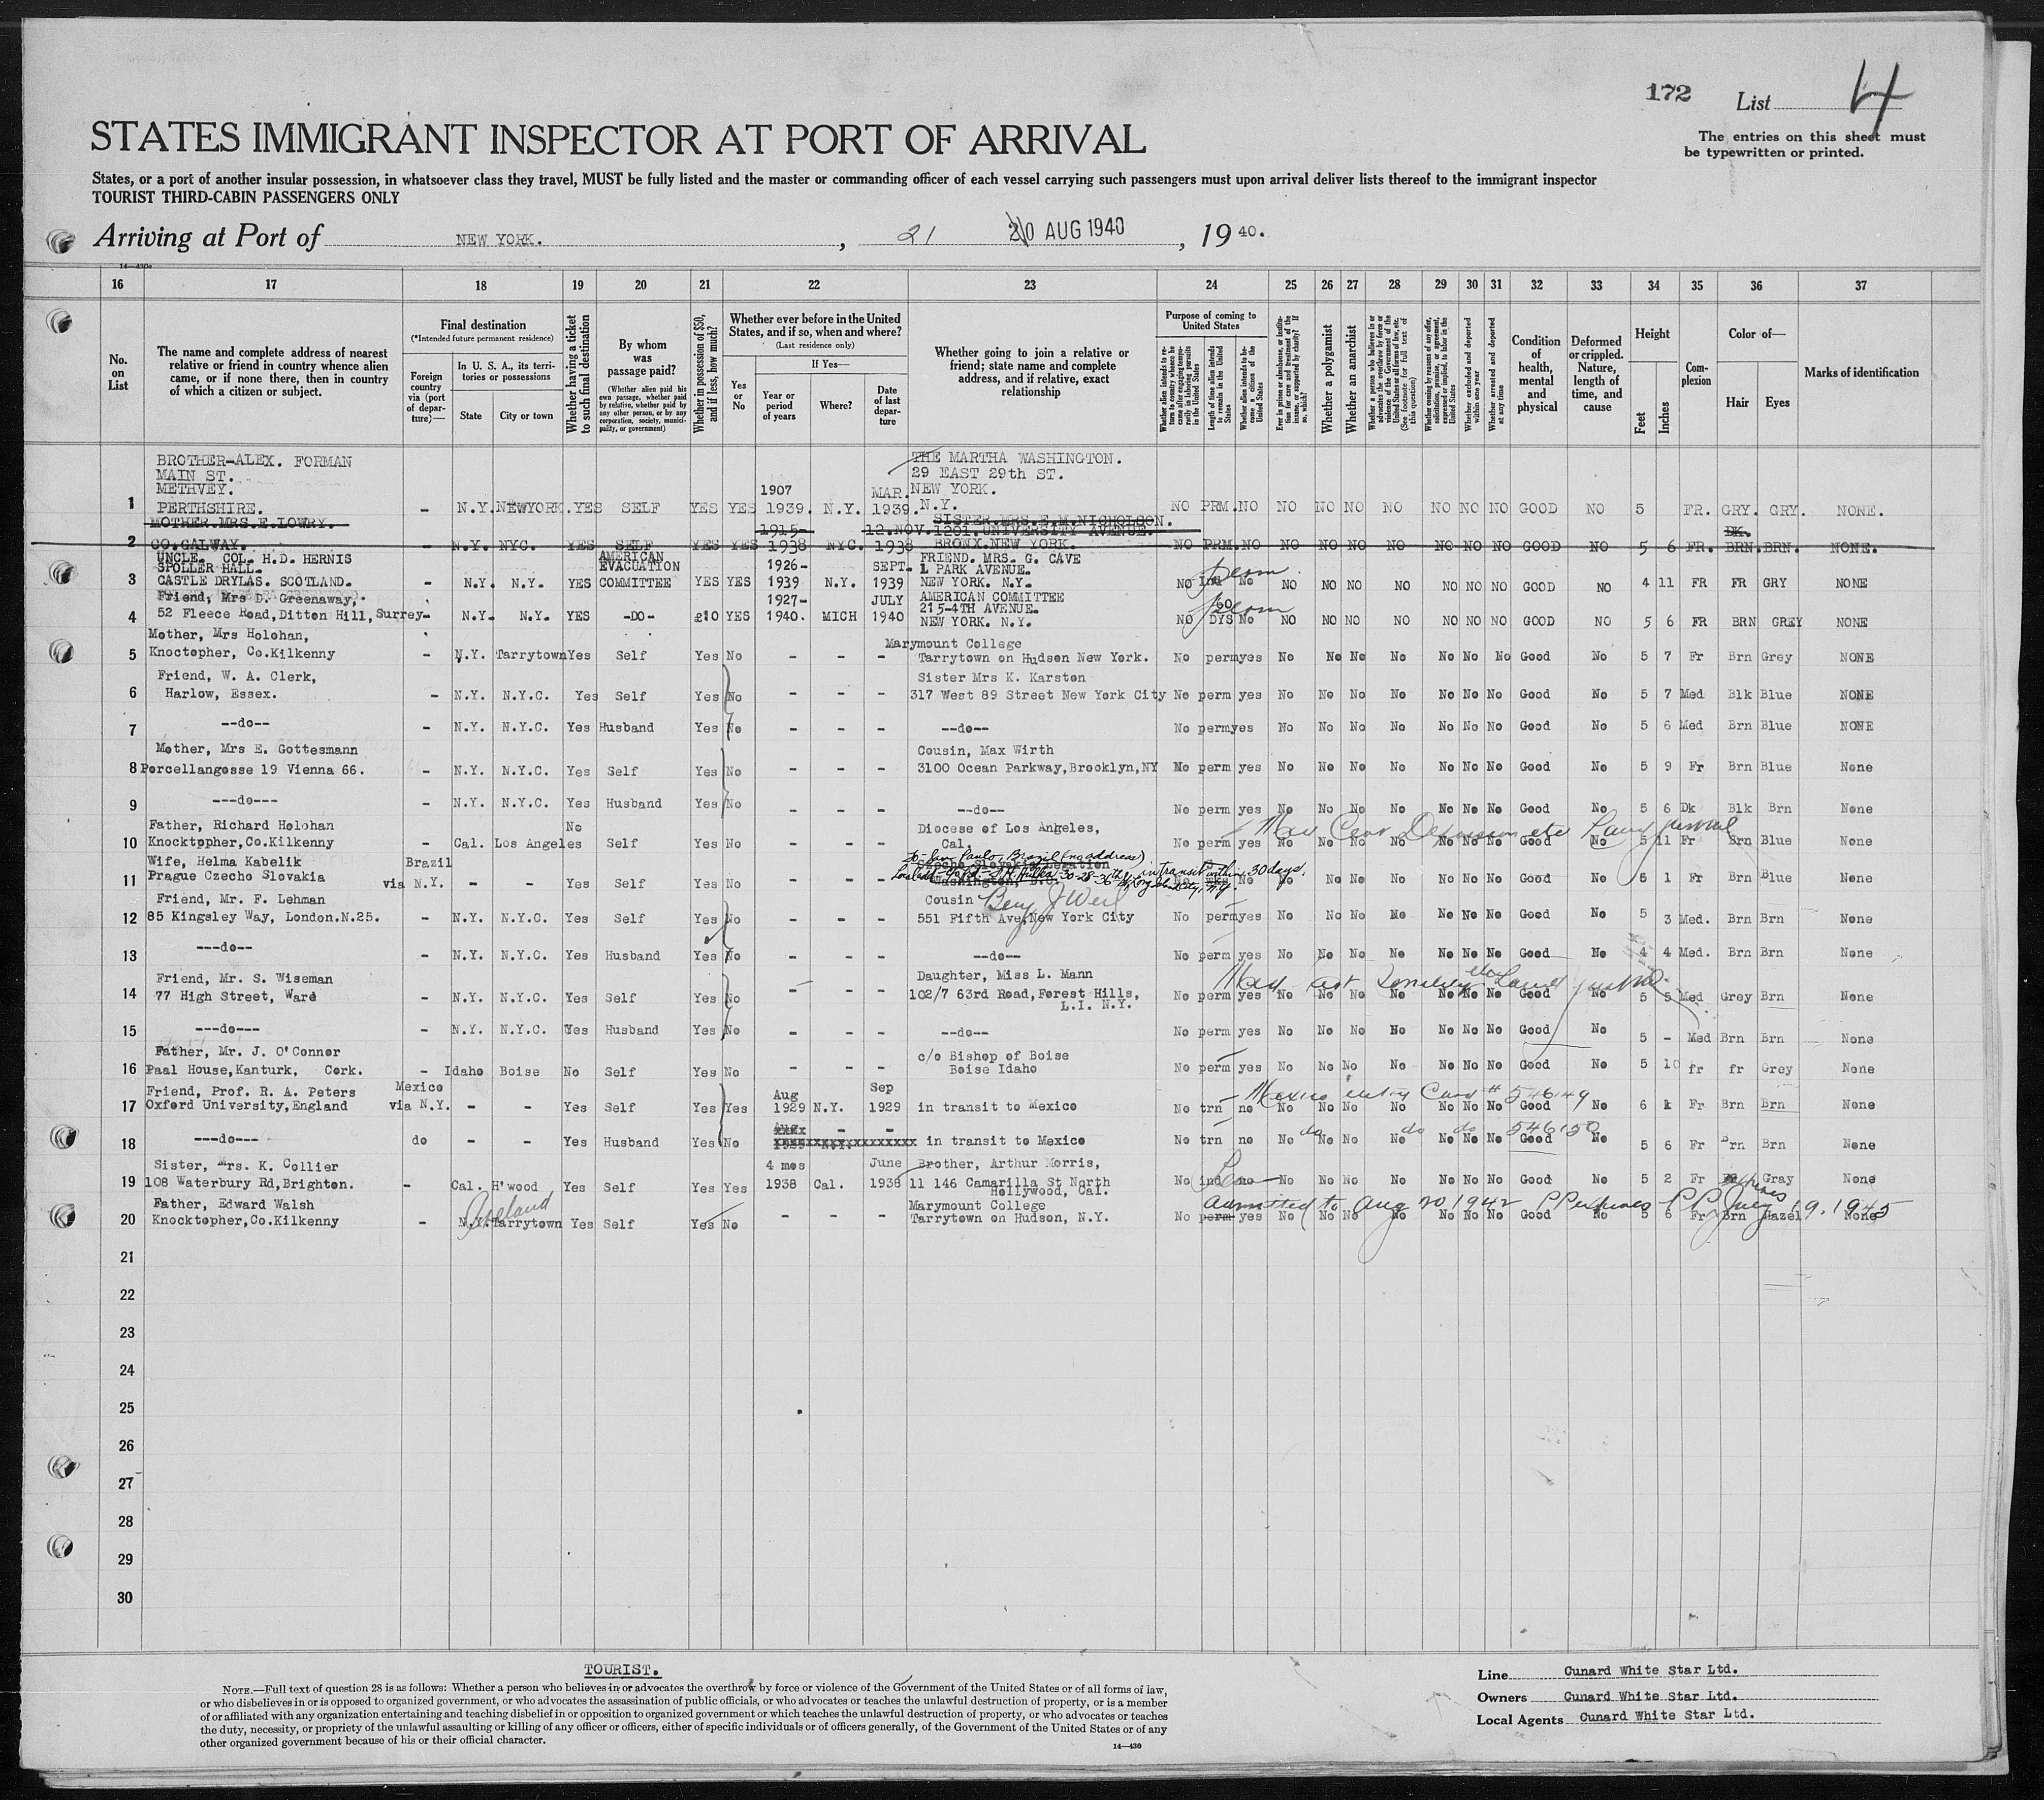 172 List 4
The entries on this sheet must
be typewritten or printed.
STATES IMMIGRANT INSPECTOR AT PORT OF ARRIVAL
States, or a port of another insular possession, in whatsoever class they travel, MUST be fully listed and the master or commanding officer of each vessel carrying such passengers must upon arrival deliver lists thereof to the immigrant inspector
TOURIST THIRD-CABIN PASSENGERS ONLY
Arriving at Port of NEW YORK. , 21 20 AUG 1940 , 19 40.
14—430
16 17 18 19 20 21 22 23 24 25 26 27 28 29 30 31 32 33 34 35 36 37
No. on List
The name and complete address of nearest relative or friend in country whence alien came, or if none there, then in country of which a citizen or subject.
Final destination
(*Intended future permanent residence)
Foreign country via (port of departure)—
In U. S. A., its territories or possessions
State
City or town
Whether having a ticket to such final destination
By whom was passage paid?
(Whether alien paid his own passage, whether paid by relative, whether paid by any other person, or by any corporation, society, municipality, or government)
Whether in possession of $50, and if less, how much?
Whether ever before in the United States, and if so, when and where?
(Last residence only)
Yes or No
If Yes—
Year or period of years
Where?
Date of last departure
Whether going to join a relative or friend; state name and complete address, and if relative, exact relationship
Purpose of coming to United States
Whether alien intends to return to country whence he came after engaging temporarily in laboring pursuits in the United States
Length of time alien intends to remain in the United States
Whether alien intends to become a citizen of the United States
Ever in prison or almshouse, or institution for care and treatment of the insane, or supported by charity? If so, which?
Whether a polygamist
Whether an anarchist
Whether a person who believes in or advocates the overthrow by force or violence of the Government of the United States or all forms of law, etc. (See footnote for full text of this question)
Whether coming by reason of any offer, solicitation, promise, or agreement, expressed or implied, to labor in the United States
Whether excluded and deported within one year
Whether arrested and deported at any time
Condition of health, mental and physical
Deformed or crippled. Nature, length of time, and cause
Height
Feet
Inches
Complexion
Color of—
Hair
Eyes
Marks of identification
BROTHER-ALEX. FORMAN THE MARTHA WASHINGTON.
MAIN ST. 29 EAST 29th ST.
METHVEY. 1907 MAR. NEW YORK.
1 PERTHSHIRE. - N.Y. NEWYORK. YES SELF YES YES 1939. N.Y. 1939. N.Y. NO PRM. NO NO NO NO NO NO NO NO GOOD NO 5 FR. GRY. GRY. NONE.
MOTHER.MRS.E.LOWRY. 1915- 12.NOV. SISTER.MRS.E.M.NICHOLSON.
1201.UNIVERSITY AVENUE. DK.
2 CO.GALWAY. - N.Y. NYC. YES SELF YES YES 1938 NYC. 1938 BRONX.NEW YORK. NO PRM. NO NO NO NO NO NO NO NO GOOD NO 5 6 FR. BRN. BRN. NONE.
UNCLE. COL. H.D. HERNIS AMERICAN FRIEND. MRS. G. CAVE
SPOLLER HALL. EVACUATION 1926- SEPT. 1 PARK AVENUE. perm.
3 CASTLE DRYLAS. SCOTLAND. - N.Y. N.Y. YES COMMITTEE YES YES 1939 N.Y. 1939 NEW YORK. N.Y. NO Ind No NO NO NO NO NO NO NO GOOD NO 4 11 FR FR GRY NONE
Friend, Mrs D. Greenaway, 1927- JULY AMERICAN COMMITTEE
52 Fleece Road, Ditton Hill, Surrey 215-4TH AVENUE. 60 perm
4 - N.Y. N.Y. YES -DO- £10 YES 1940. MICH 1940 NEW YORK. N.Y. NO DYS No NO NO NO NO NO NO NO GOOD NO 5 6 FR BRN GREY NONE
Mother, Mrs Holohan, Marymount College
5 Knoctopher, Co.Kilkenny - N.Y. Tarrytown Yes Self Yes No - - - Tarrytown on Hudson New York. No perm yes No No No No No No No Good No 5 7 Fr Brn Grey NONE
Friend, W. A. Clerk, Sister Mrs K. Karston
6 Harlow, Essex. - N.Y. N.Y.C. Yes Self Yes No - - - 317 West 89 Street New York City No perm yes No No No No No No No Good No 5 7 Med Blk Blue NONE
7 --do-- - N.Y. N.Y.C. Yes Husband Yes No - - - --do-- No perm yes No No No No No No No Good No 5 6 Med Brn Blue NONE
Mother, Mrs E. Gottesmann Cousin, Max Wirth
8 Porcellangosse 19 Vienna 66. - N.Y. N.Y.C. Yes Self Yes No - - - 3100 Ocean Parkway, Brooklyn, NY No perm yes No No No No No No No Good No 5 9 Fr Brn Blue None
9 ---do--- - N.Y. N.Y.C. Yes Husband Yes No - - - --do-- No perm yes No No No No No No No Good No 5 6 Dk Blk Brn None
Father, Richard Holohan No Diocese of Los Angeles,
10 Knocktopher, Co.Kilkenny - Cal. Los Angeles Self Yes No - - - Cal. No perm yes No No No No No No No Good No 5 11 Fr Brn Blue None
Wife, Helma Kabelik Brazil to Sao Paulo, Brazil (no address)
11 Prague Czecho Slovakia via N.Y. - - Yes Self Yes No - - - Washington, D.C. in transit within 30 days. No No No No No No No No No Good No 5 1 Fr Brn Blue None
Friend, Mr. F. Lehman Cousin Benj J Weil
12 85 Kingsley Way, London.N.25. - N.Y. N.Y.C. Yes Self Yes No - - - 551 Fifth Ave, New York City No perm yes No No No No No No No Good No 5 3 Med. Brn Brn None
13 ---do-- - N.Y. N.Y.C. Yes Husband Yes No - - - --do-- No perm yes No No No No No No No Good No 4 4 Med. Brn Brn None
Friend, Mr. S. Wiseman Daughter, Miss L. Mann
14 77 High Street, Ward - N.Y. N.Y.C. Yes Self Yes No - - - 102/7 63rd Road, Forest Hills, No perm yes No No No No No No No Good No 5 5 Med Grey Brn None
L.I. N.Y.
15 ---do--- - N.Y. N.Y.C. Yes Husband Yes No - - - --do-- No perm yes No No No No No No No Good No 5 - Med Brn Brn None
Father, Mr. J. O'Connor c/o Bishop of Boise
16 Paal House, Kanturk, Cork. - Idaho Boise No Self Yes No - - - Boise Idaho No perm yes No No No No No No No Good No 5 10 fr fr Grey None
Friend, Prof. R. A. Peters Mexico Aug Sep Mexico entry Card # 546149
17 Oxford University, England via N.Y. - - Yes Self Yes Yes 1929 N.Y. 1929 in transit to Mexico No trn no No No No No No No No Good No 6 1 Fr Brn Brn None
Aug - - do do do 546150
18 ---do--- do - - Yes Husband Yes No 1929 N.Y. in transit to Mexico No trn no No No No No No No No Good No 5 6 Fr Brn Brn None
Sister, Mrs. K. Collier 4 mos June Brother, Arthur Morris,
19 108 Waterbury Rd, Brighton. - Cal. H'wood Yes Self Yes Yes 1938 Cal. 1938 11 146 Camarilla St North No ind no No No No No No No No Good No 5 2 Fr Gray None
Hollywood, Cal.
Father, Edward Walsh Marymount College Admitted to Aug 20 1942 PP July 19, 1945
20 Knocktopher, Co.Kilkenny - N.Y. Tarrytown Yes Self Yes No - - - Tarrytown on Hudson, N.Y. No perm yes No No No No No No No Good No 5 6 Fr Brn Hazel None
21
22
23
24
25
26
27
28
29
30
TOURIST.
NOTE.—Full text of question 28 is as follows: Whether a person who believes in or advocates the overthrow by force or violence of the Government of the United States or of all forms of law,
or who disbelieves in or is opposed to organized government, or who advocates the assassination of public officials, or who advocates or teaches the unlawful destruction of property, or is a member
of or affiliated with any organization entertaining and teaching disbelief in or opposition to organized government or which teaches the unlawful destruction of property, or who advocates or teaches
the duty, necessity, or propriety of the unlawful assaulting or killing of any officer or officers, either of specific individuals or of officers generally, of the Government of the United States or of any
other organized government because of his or their official character.
14—430
Line Cunard White Star Ltd.
Owners Cunard White Star Ltd.
Local Agents Cunard White Star Ltd.